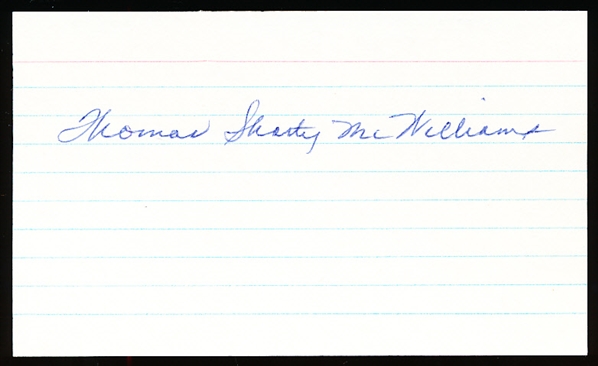 Thomas Shorty McWilliams